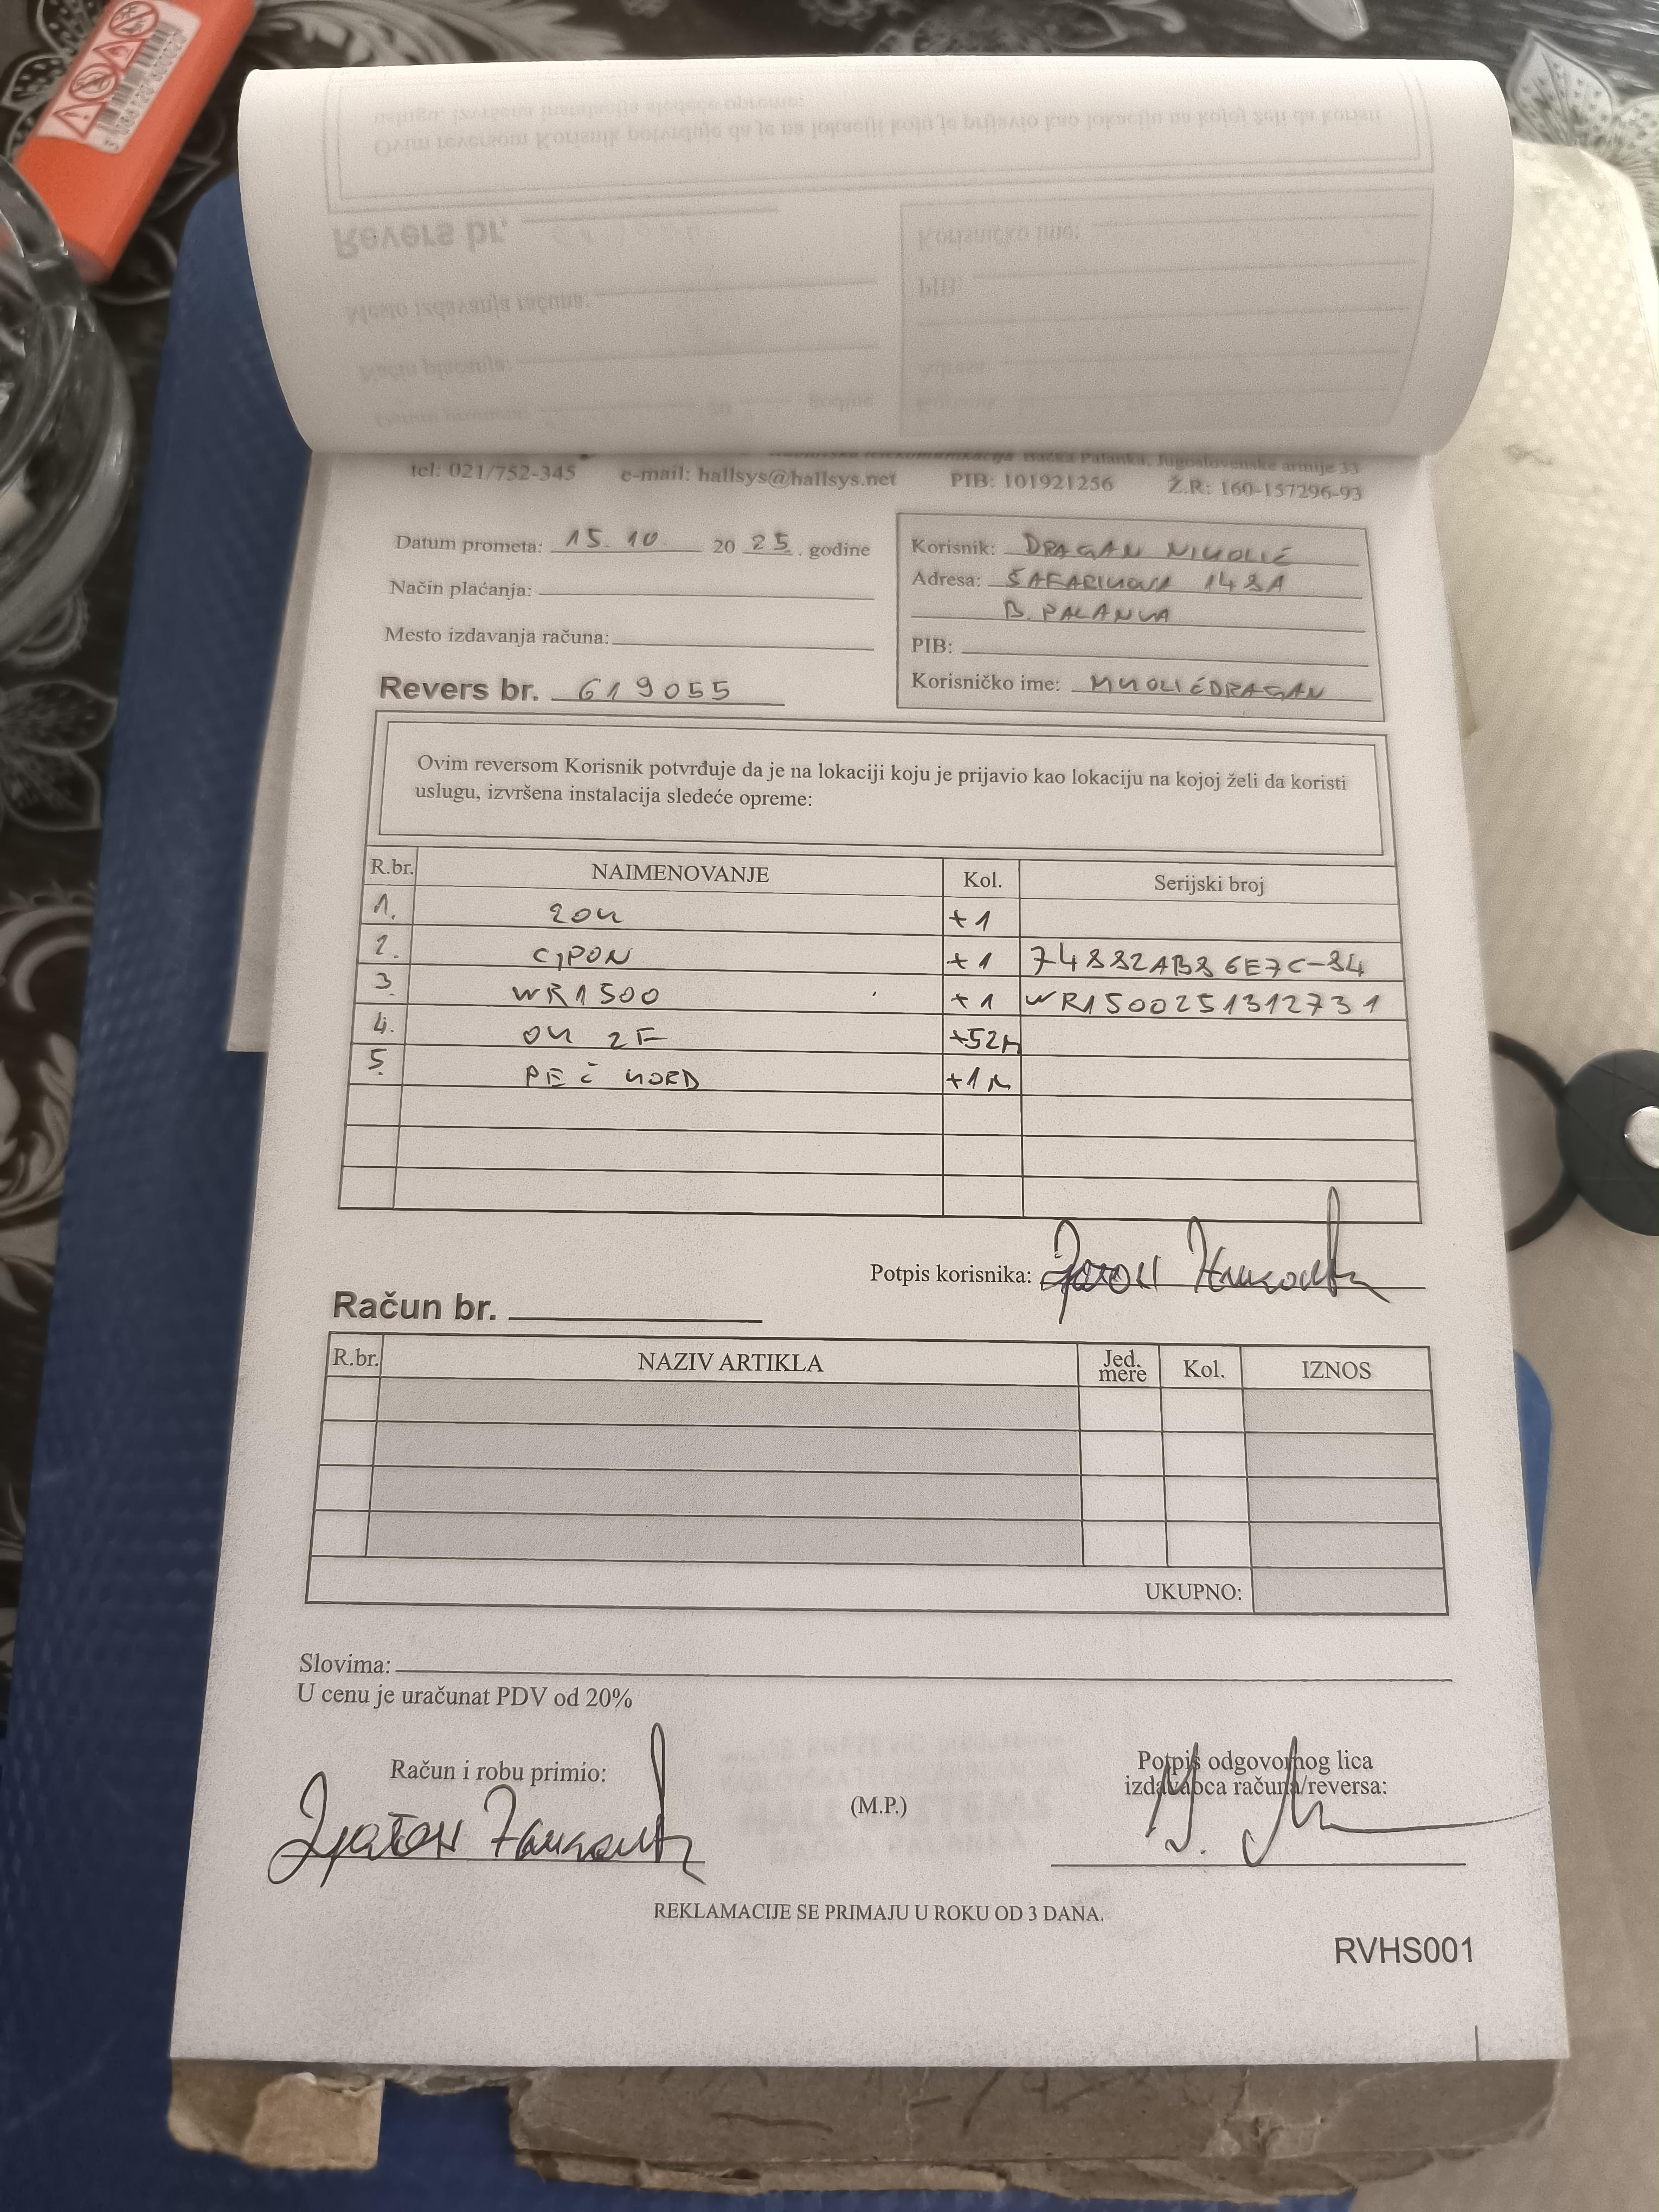 Bačka Palanka, Jugoslovenske armije 33
tel: 021/752-345 e-mail: hallsys@hallsys.net PIB: 101921256 Ž.R: 160-157296-93
Datum prometa: 15. 10. 20 25. godine
Način plaćanja:
Mesto izdavanja računa:
Revers br. 619055
Korisnik: DRAGAN NIKOLIĆ
Adresa: ŠAFARIKOVA 148A
B. PALANKA
PIB:
Korisničko ime: NIKOLIĆDRAGAN
Ovim reversom Korisnik potvrđuje da je na lokaciji koju je prijavio kao lokaciju na kojoj želi da koristi
uslugu, izvršena instalacija sledeće opreme:
R.br. NAIMENOVANJE Kol. Serijski broj
1. ZOK +1
2. GPON +1 74882AB86E7C-84
3. WR1500 +1 WR150025131273 1
4. OK 2F +52m
5. PEČ KORD +1m
Potpis korisnika:
Račun br.
R.br. NAZIV ARTIKLA Jed. mere Kol. IZNOS
UKUPNO:
Slovima:
U cenu je uračunat PDV od 20%
Račun i robu primio:
(M.P.)
Potpis odgovornog lica
izdavaoca računa/reversa:
REKLAMACIJE SE PRIMAJU U ROKU OD 3 DANA.
RVHS001